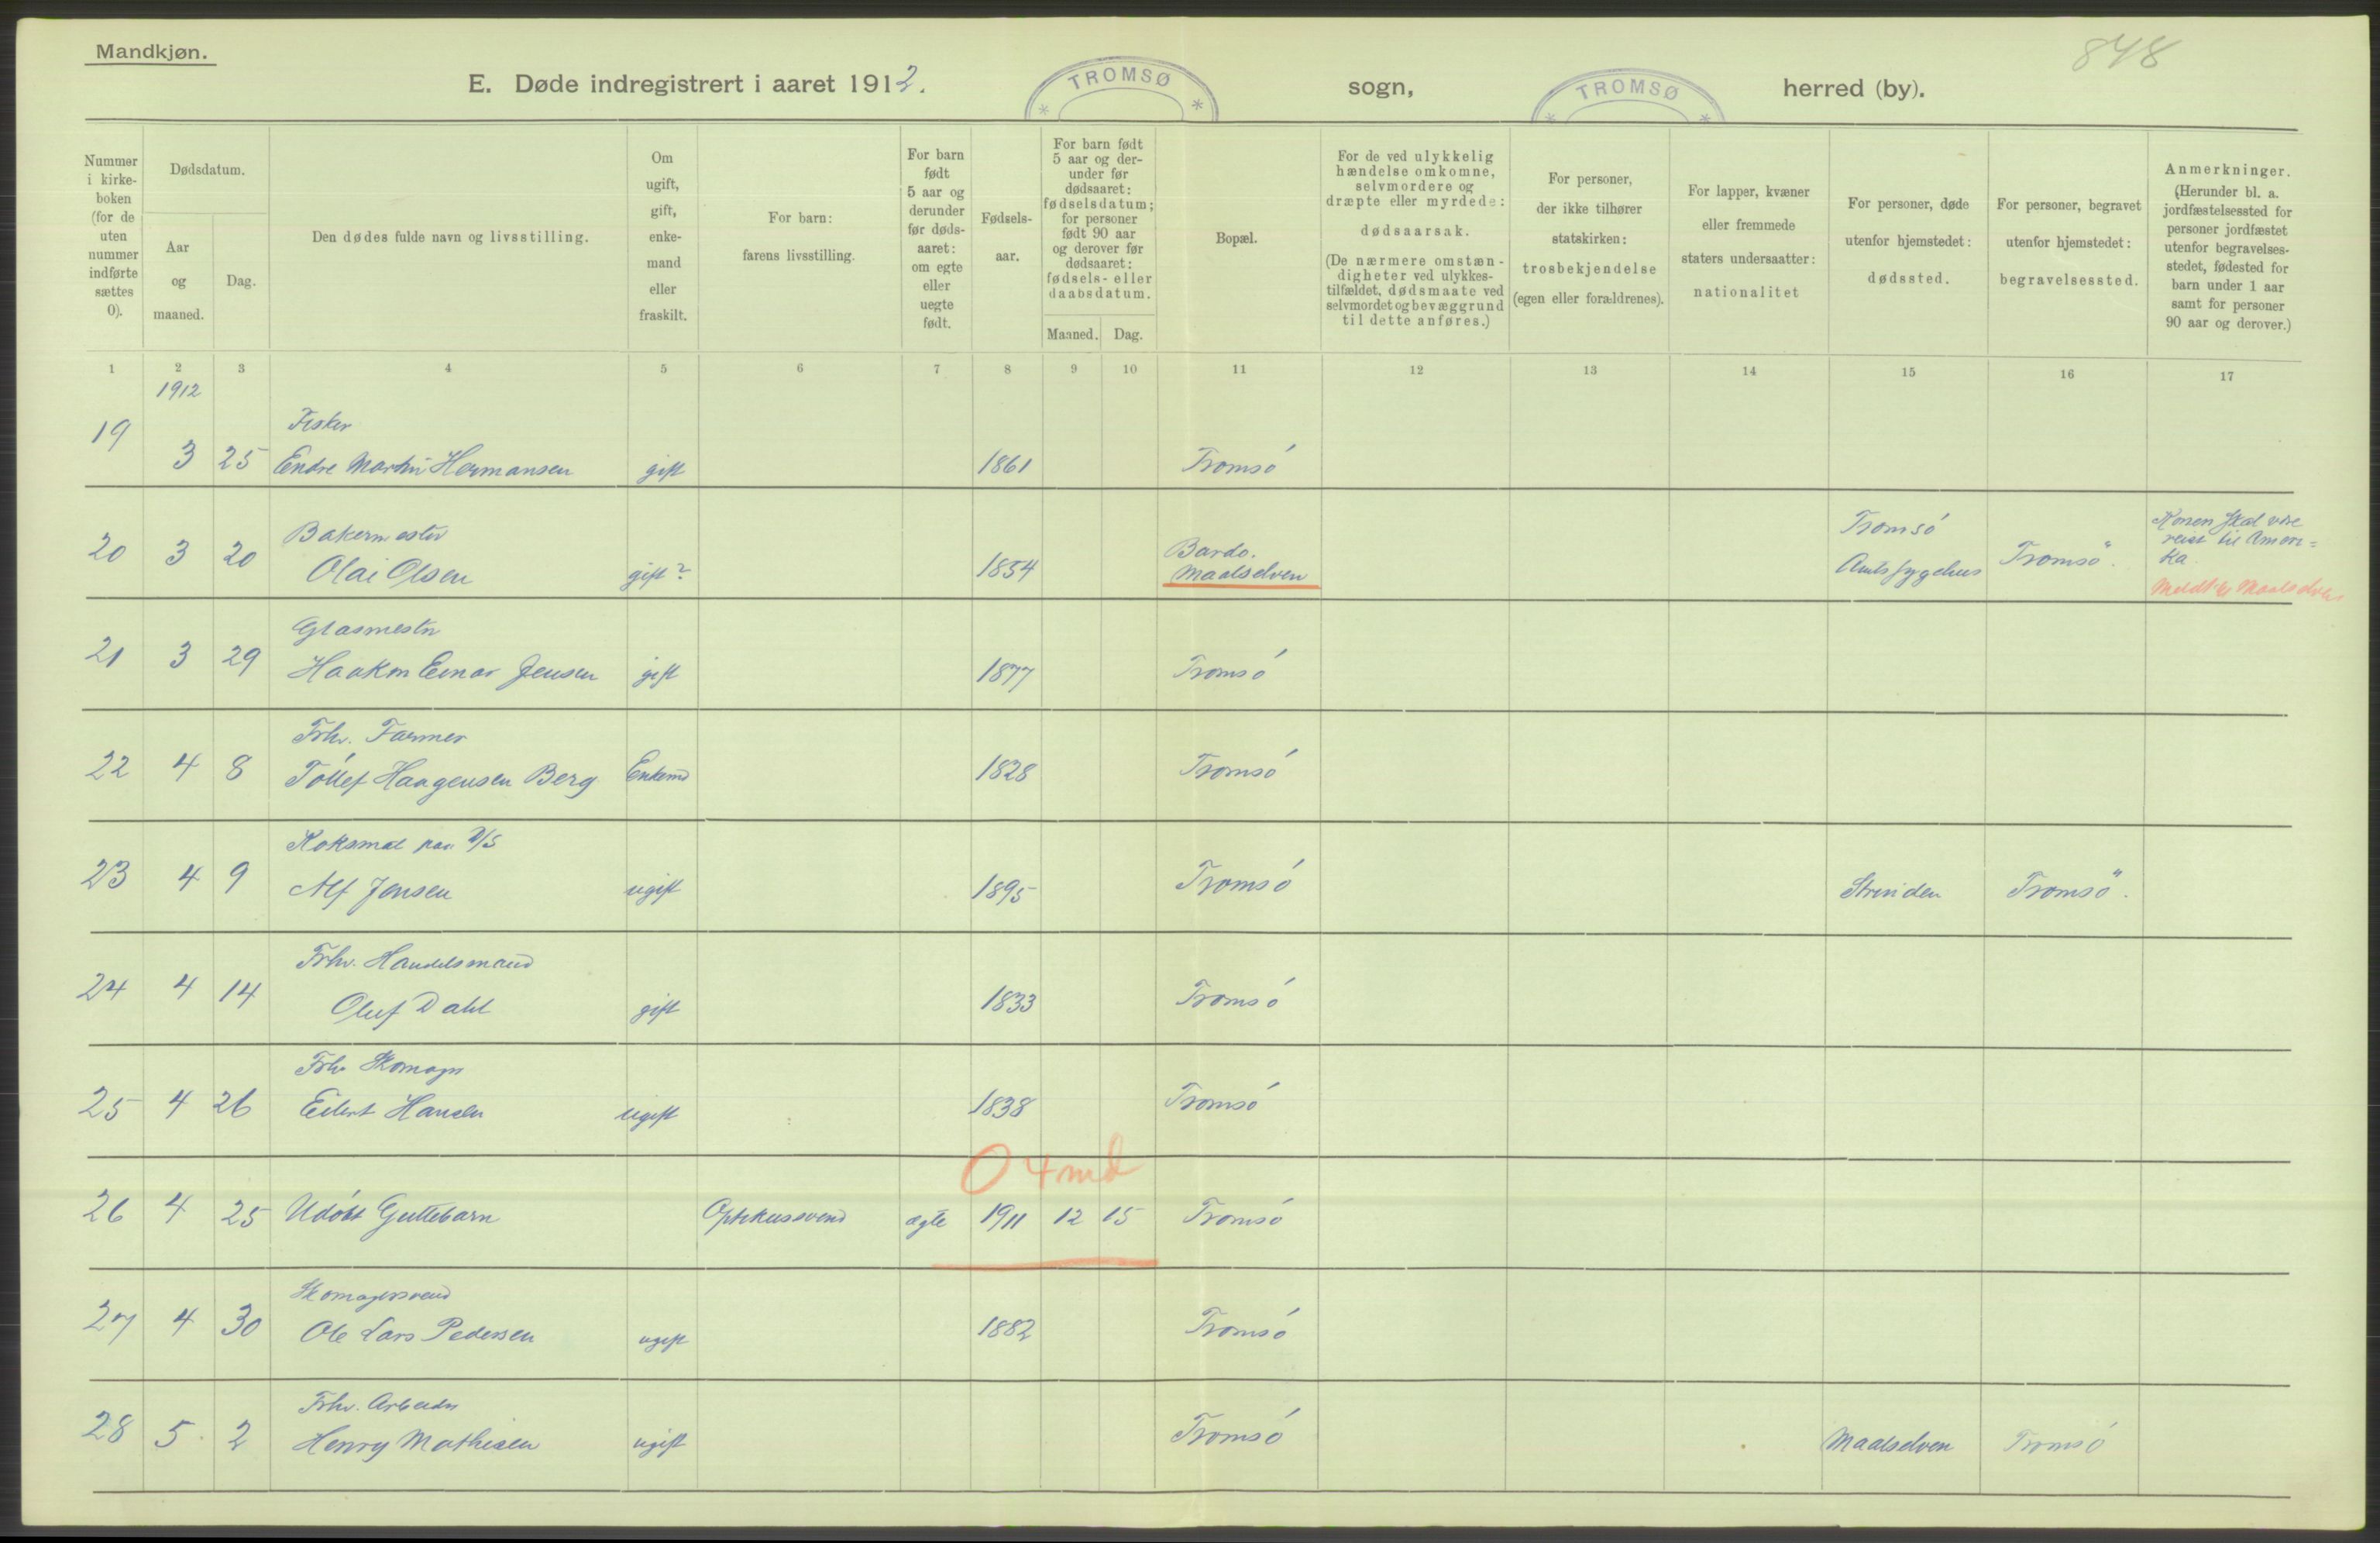 Mandkjøn.
848
E. Døde indregistrert i aaret 1912. TROMSØ sogn, TROMSØ herred (by).
Nummer i kirke- boken (for de uten nummer indførte sættes 0).
Dødsdatum.
Aar og maaned.
Dag.
Den dødes fulde navn og livsstilling.
Om ugift, gift, enke- mand eller fraskilt.
For barn: farens livsstilling.
For barn født 5 aar og derunder før døds- aaret: om egte eller uegte født.
Fødsels- aar.
For barn født 5 aar og der- under før dødsaaret: fødselsdatum; for personer født 90 aar og derover før dødsaaret: fødsels- eller daabsdatum.
Maaned. Dag.
Bopæl.
For de ved ulykkelig hændelse omkomne, selvmordere og dræpte eller myrdede: dødsaarsak. (De nærmere omstæn- digheter ved ulykkes- tilfældet, dødsmaate ved selvmordet og bevæggrund til dette anføres.)
For personer, der ikke tilhører statskirken: trosbekjendelse (egen eller forældrenes).
For lapper, kvæner eller fremmede staters undersaatter: nationalitet
For personer, døde utenfor hjemstedet: dødssted.
For personer, begravet utenfor hjemstedet: begravelsessted.
Anmerkninger. (Herunder bl. a. jordfæstelsessted for personer jordfæstet utenfor begravelses- stedet, fødested for barn under 1 aar samt for personer 90 aar og derover.)
1 2 3 4 5 6 7 8 9 10 11 12 13 14 15 16 17
1912
Fisker
19 3 25 Endre Martin Hermansen gift 1861 Tromsö
Bakermester Bardo. Tromsö Konen skal være
reist til Ameri=
20 3 20 Olai Olsen gift? 1854 Maalselven Amtssygehus Tromsö. ka
Meldt til Maalselven
Glasmester
21 3 29 Haakon Einar Jensen gift 1877 Tromsö
Frhv. Farmer
22 4 8 Töllef Haagensen Berg Enkemd 1828 Tromsö
Koksmat paa D/S
23 4 9 Alf Jensen ugift 1895 Tromsö Strinden Tromsö.
Frhv. Handelsmand
24 4 14 Oluf Dahl gift 1833 Tromsö
Frhv Skomager
25 4 26 Eilert Hansen ugift 1838 Tromsö
0 4 md
26 4 25 Udöbt Guttebarn Optikussvend ægte 1911 12 15 Tromsö
Skomagersvend
27 4 30 Ole Lars Pedersen ugift 1882 Tromsö
Frhv. Arbeider
28 5 2 Henry Mathisen ugift Tromsö Maalselven Tromsö